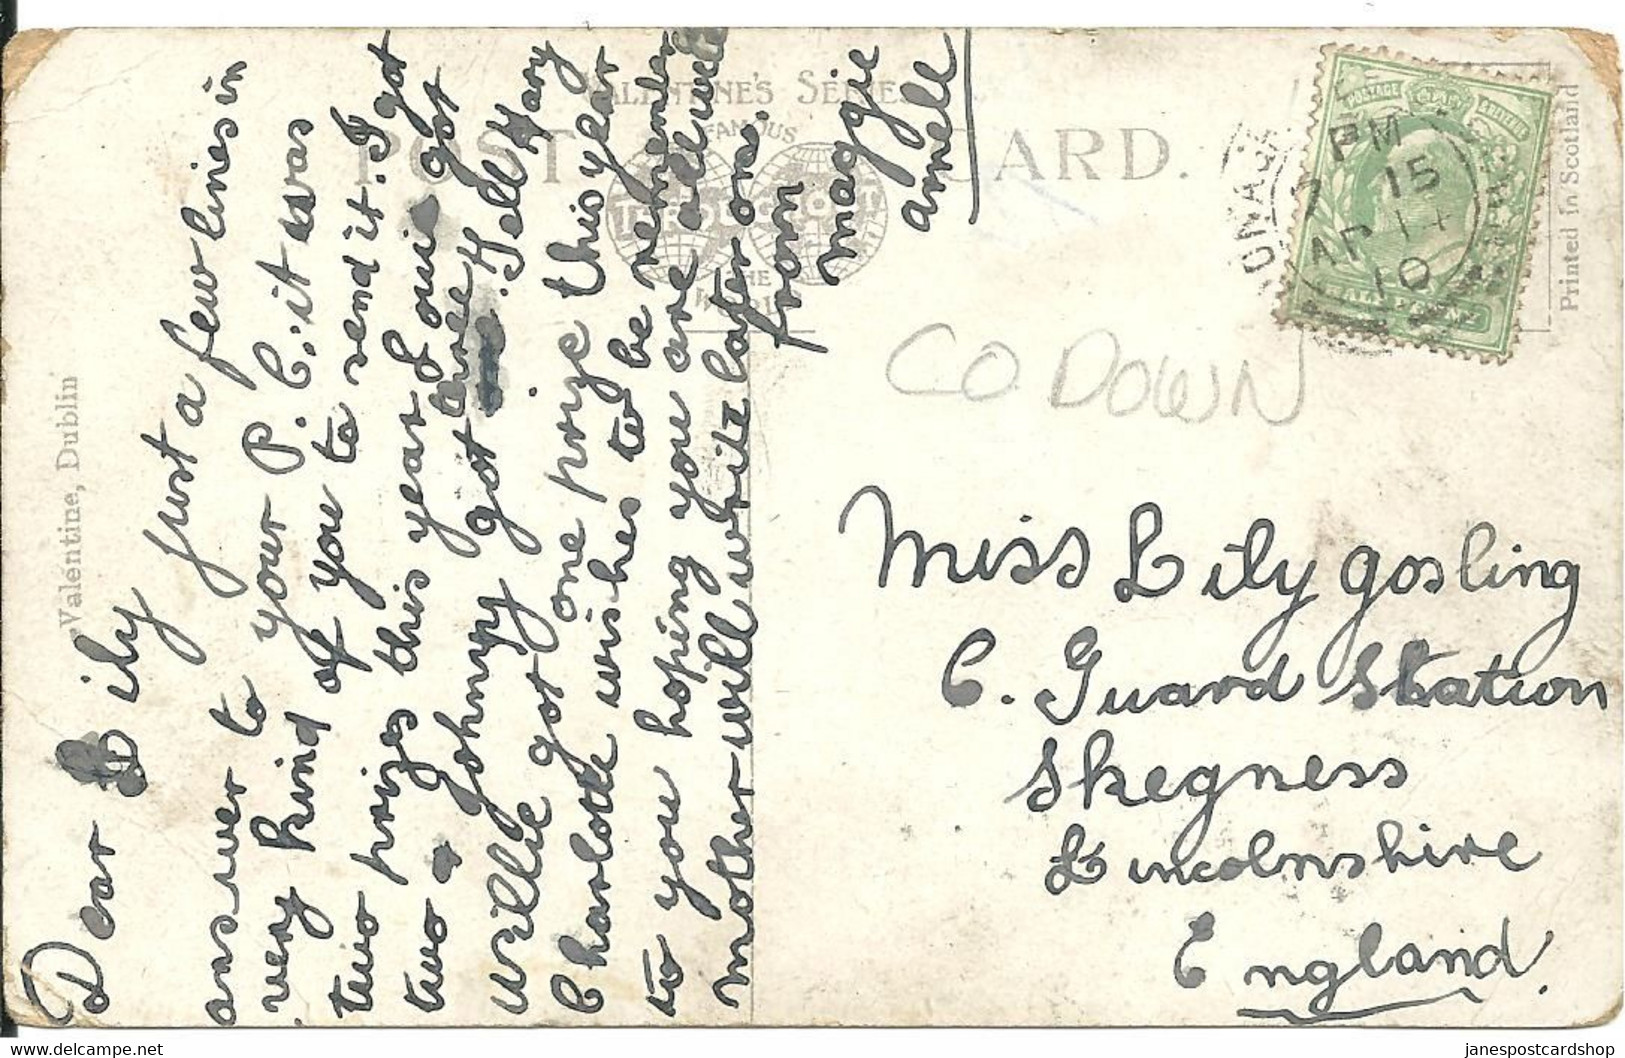 Dear Lily just a few lines in
answer to your P. C. it was
very kind of you to send it. I got
two prizes this year Louie got
two & Johnny got three. Tell Mary
Willie got one prize this year
Charlotte wishes to be remember
to you hoping you are all well
mother will write later on.
from
Maggie
Amell
Valentine, Dublin
VALENTINE'S SERIES
FAMOUS
THE
POST CARD.
Printed in Scotland
POSTAGE
HALF PENNY
PM
15
AP 14
10
CO DOWN
Miss Lily gosling
C. Guard Station
Skegness
Lincolnshire
England.
delcampe.net
janespostcardshop